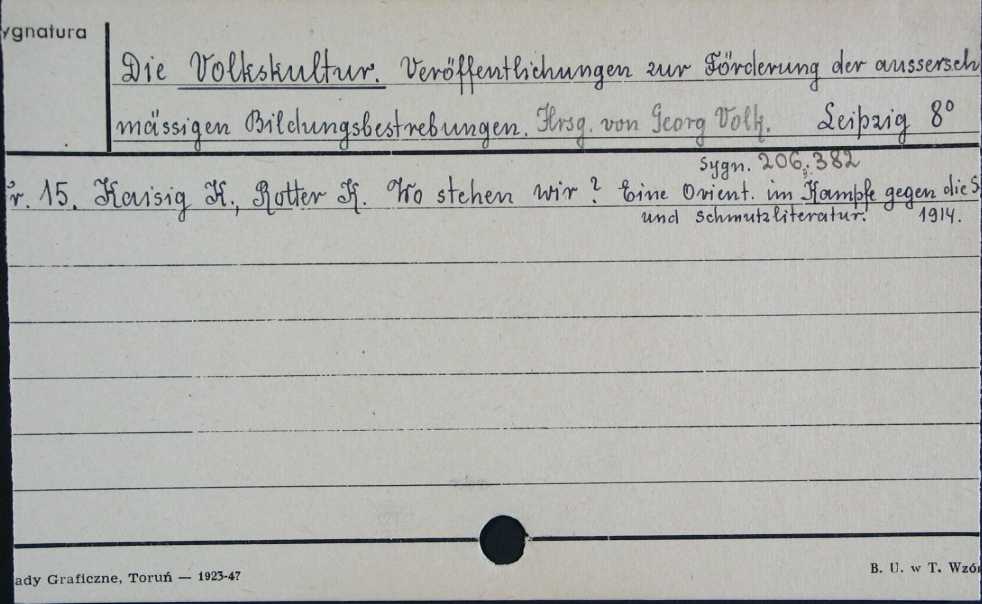 ygnatura
Die Volkskultur. Veröffentlichungen zur Förderung der aussersch
mässigen Bildungsbestrebungen. Hrsg. von Georg Volk. Leipzig 8°
Sygn. 206.382
r. 15. Kaisig K., Rotter K. Wo stehen wir? Eine Orient. im Kampfe gegen die S
und Schmutzliteratur. 1914.
ady Graficzne, Toruń — 1923-47
B. U. w T. Wzó